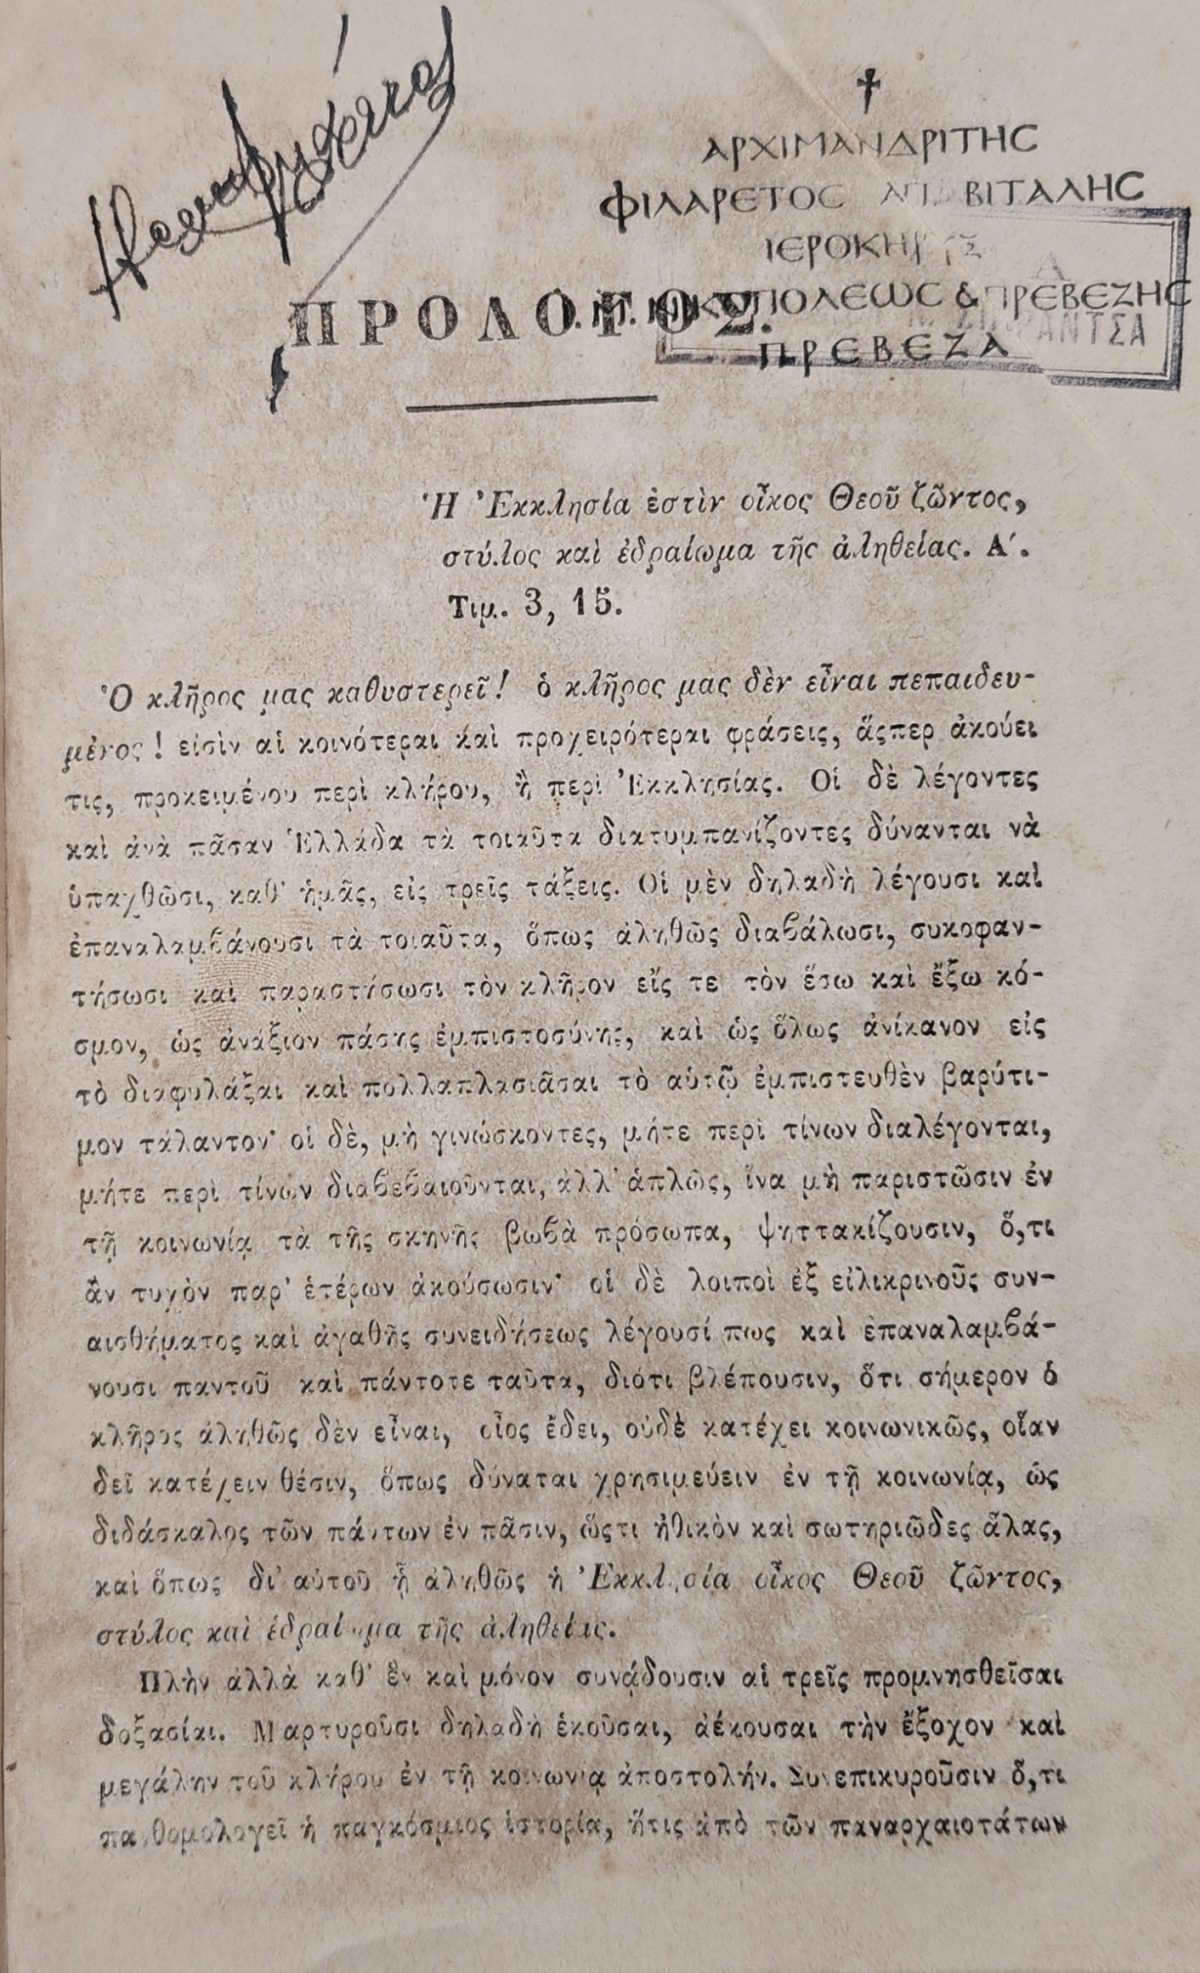 †
ΑΡΧΙΜΑΝΔΡΙΤΗϹ
ΦΙΛΑΡΕΤΟϹ ΒΙΤΑΛΗϹ
ΙΕΡΟΚΗΡΥΞ
ΠΟΛΕΩϹ & ΠΡΕΒΕΖΗϹ
ΠΡΕΒΕΖΑ
ΠΡΟΛΟΓΟΣ.
Ἡ Ἐκκλησία ἐστὶν οἶκος Θεοῦ ζῶντος,
στύλος καὶ ἑδραίωμα τῆς ἀληθείας. Α΄.
Τιμ. 3, 15.
Ὁ κλῆρος μας καθυστερεῖ! ὁ κλῆρος μας δὲν εἶναι πεπαιδευ-
μένος! εἰσὶν αἱ κοινότεραι καὶ προχειρότεραι φράσεις, ἅςπερ ἀκούει
τις, προκειμένου περὶ κλήρου, ἢ περὶ Ἐκκλησίας. Οἱ δὲ λέγοντες
καὶ ἀνὰ πᾶσαν Ἑλλάδα τὰ τοιαῦτα διατυμπανίζοντες δύνανται νὰ
ὑπαχθῶσι, καθ' ἡμᾶς, εἰς τρεῖς τάξεις. Οἱ μὲν δηλαδὴ λέγουσι καὶ
ἐπαναλαμβάνουσι τὰ τοιαῦτα, ὅπως ἀληθῶς διαβάλωσι, συκοφαν-
τήσωσι καὶ παραστήσωσι τὸν κλῆρον εἴς τε τὸν ἔσω καὶ ἔξω κό-
σμον, ὡς ἀνάξιον πάσης ἐμπιστοσύνης, καὶ ὡς ὅλως ἀνίκανον εἰς
τὸ διαφυλάξαι καὶ πολλαπλασιᾶσαι τὸ αὑτῷ ἐμπιστευθὲν βαρύτι-
μον τάλαντον· οἱ δὲ, μὴ γινώσκοντες, μήτε περὶ τίνων διαλέγονται,
μήτε περὶ τίνων διαβεβαιοῦνται, ἀλλ' ἁπλῶς, ἵνα μὴ παριστῶσιν ἐν
τῇ κοινωνίᾳ τὰ τῆς σκηνῆς βωβὰ πρόσωπα, ψηττακίζουσιν, ὅ,τι
ἂν τυχὸν παρ' ἑτέρων ἀκούσωσιν· οἱ δὲ λοιποὶ ἐξ εἰλικρινοῦς συν-
αισθήματος καὶ ἀγαθῆς συνειδήσεως λέγουσί πως καὶ ἐπαναλαμβά-
νουσι παντοῦ καὶ πάντοτε ταῦτα, διότι βλέπουσιν, ὅτι σήμερον ὁ
κλῆρος ἀληθῶς δὲν εἶναι, οἷος ἔδει, οὐδὲ κατέχει κοινωνικῶς, οἵαν
δεῖ κατέχειν θέσιν, ὅπως δύναται χρησιμεύειν ἐν τῇ κοινωνίᾳ, ὡς
διδάσκαλος τῶν πάντων ἐν πᾶσιν, ὥςτι ἠθικὸν καὶ σωτηριῶδες ἅλας,
καὶ ὅπως δι' αὐτοῦ ᾖ ἀληθῶς ἡ Ἐκκλησία οἶκος Θεοῦ ζῶντος,
στύλος καὶ ἑδραίωμα τῆς ἀληθείας.
Πλὴν ἀλλὰ καθ' ἓν καὶ μόνον συνᾴδουσιν αἱ τρεῖς προμνησθεῖσαι
δοξασίαι. Μαρτυροῦσι δηλαδὴ ἑκοῦσαι, ἀέκουσαι τὴν ἔξοχον καὶ
μεγάλην τοῦ κλήρου ἐν τῇ κοινωνίᾳ ἀποστολήν. Συνεπικυροῦσιν ὅ,τι
πανθομολογεῖ ἡ παγκόσμιος ἱστορία, ἥτις ἀπὸ τῶν παναρχαιοτάτων